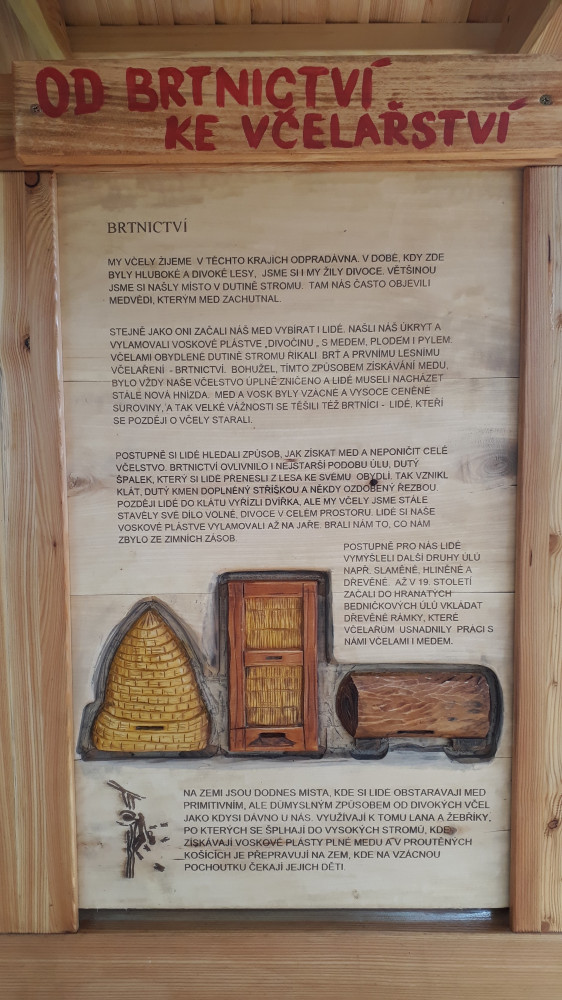 OD BRTNICTVÍ
KE VČELAŘSTVÍ
BRTNICTVÍ
MY VČELY ŽIJEME V TĚCHTO KRAJÍCH ODPRADÁVNA. V DOBĚ, KDY ZDE
BYLY HLUBOKÉ A DIVOKÉ LESY, JSME SI I MY ŽILY DIVOCE. VĚTŠINOU
JSME SI NAŠLY MÍSTO V DUTINĚ STROMU. TAM NÁS ČASTO OBJEVILI
MEDVĚDI, KTERÝM MED ZACHUTNAL.
STEJNĚ JAKO ONI ZAČALI NÁŠ MED VYBÍRAT I LIDÉ. NAŠLI NÁŠ ÚKRYT A
VYLAMOVALI VOSKOVÉ PLÁSTVE „DIVOČINU „ S MEDEM, PLODEM I PYLEM.
VČELAMI OBYDLENÉ DUTINĚ STROMU ŘÍKALI BRŤ A PRVNÍMU LESNÍMU
VČELAŘENÍ - BRTNICTVÍ. BOHUŽEL, TÍMTO ZPŮSOBEM ZÍSKÁVÁNÍ MEDU,
BYLO VŽDY NAŠE VČELSTVO ÚPLNĚ ZNIČENO A LIDÉ MUSELI NACHÁZET
STÁLE NOVÁ HNÍZDA. MED A VOSK BYLY VZÁCNÉ A VYSOCE CENĚNÉ
SUROVINY, A TAK VELKÉ VÁŽNOSTI SE TĚŠILI TÉŽ BRTNÍCI - LIDÉ, KTEŘÍ
SE POZDĚJI O VČELY STARALI.
POSTUPNĚ SI LIDÉ HLEDALI ZPŮSOB, JAK ZÍSKAT MED A NEPONIČIT CELÉ
VČELSTVO. BRTNICTVÍ OVLIVNILO I NEJSTARŠÍ PODOBU ÚLU, DUTÝ
ŠPALEK, KTERÝ SI LIDÉ PŘENESLI Z LESA KE SVÉMU OBYDLÍ. TAK VZNIKL
KLÁT, DUTÝ KMEN DOPLNĚNÝ STŘÍŠKOU A NĚKDY OZDOBENÝ ŘEZBOU.
POZDĚJI LIDÉ DO KLÁTU VYŘÍZLI DVÍŘKA, ALE MY VČELY JSME STÁLE
STAVĚLY SVÉ DÍLO VOLNĚ, DIVOCE V CELÉM PROSTORU. LIDÉ SI NAŠE
VOSKOVÉ PLÁSTVE VYLAMOVALI AŽ NA JAŘE. BRALI NÁM TO, CO NÁM
ZBYLO ZE ZIMNÍCH ZÁSOB.
POSTUPNĚ PRO NÁS LIDÉ
VYMÝŠLELI DALŠÍ DRUHY ÚLŮ
NAPŘ. SLAMĚNÉ, HLINĚNÉ A
DŘEVĚNÉ. AŽ V 19. STOLETÍ
ZAČALI DO HRANATÝCH
BEDNIČKOVÝCH ÚLŮ VKLÁDAT
DŘEVĚNÉ RÁMKY, KTERÉ
VČELAŘŮM USNADNILY PRÁCI S
NÁMI VČELAMI I MEDEM.
NA ZEMI JSOU DODNES MÍSTA, KDE SI LIDÉ OBSTARÁVAJÍ MED
PRIMITIVNÍM, ALE DŮMYSLNÝM ZPŮSOBEM OD DIVOKÝCH VČEL
JAKO KDYSI DÁVNO U NÁS. VYUŽÍVAJÍ K TOMU LANA A ŽEBŘÍKY,
PO KTERÝCH SE ŠPLHAJÍ DO VYSOKÝCH STROMŮ, KDE
ZÍSKÁVAJÍ VOSKOVÉ PLÁSTY PLNÉ MEDU A V PROUTĚNÝCH
KOŠÍCÍCH JE PŘEPRAVUJÍ NA ZEM, KDE NA VZÁCNOU
POCHOUTKU ČEKAJÍ JEJICH DĚTI.